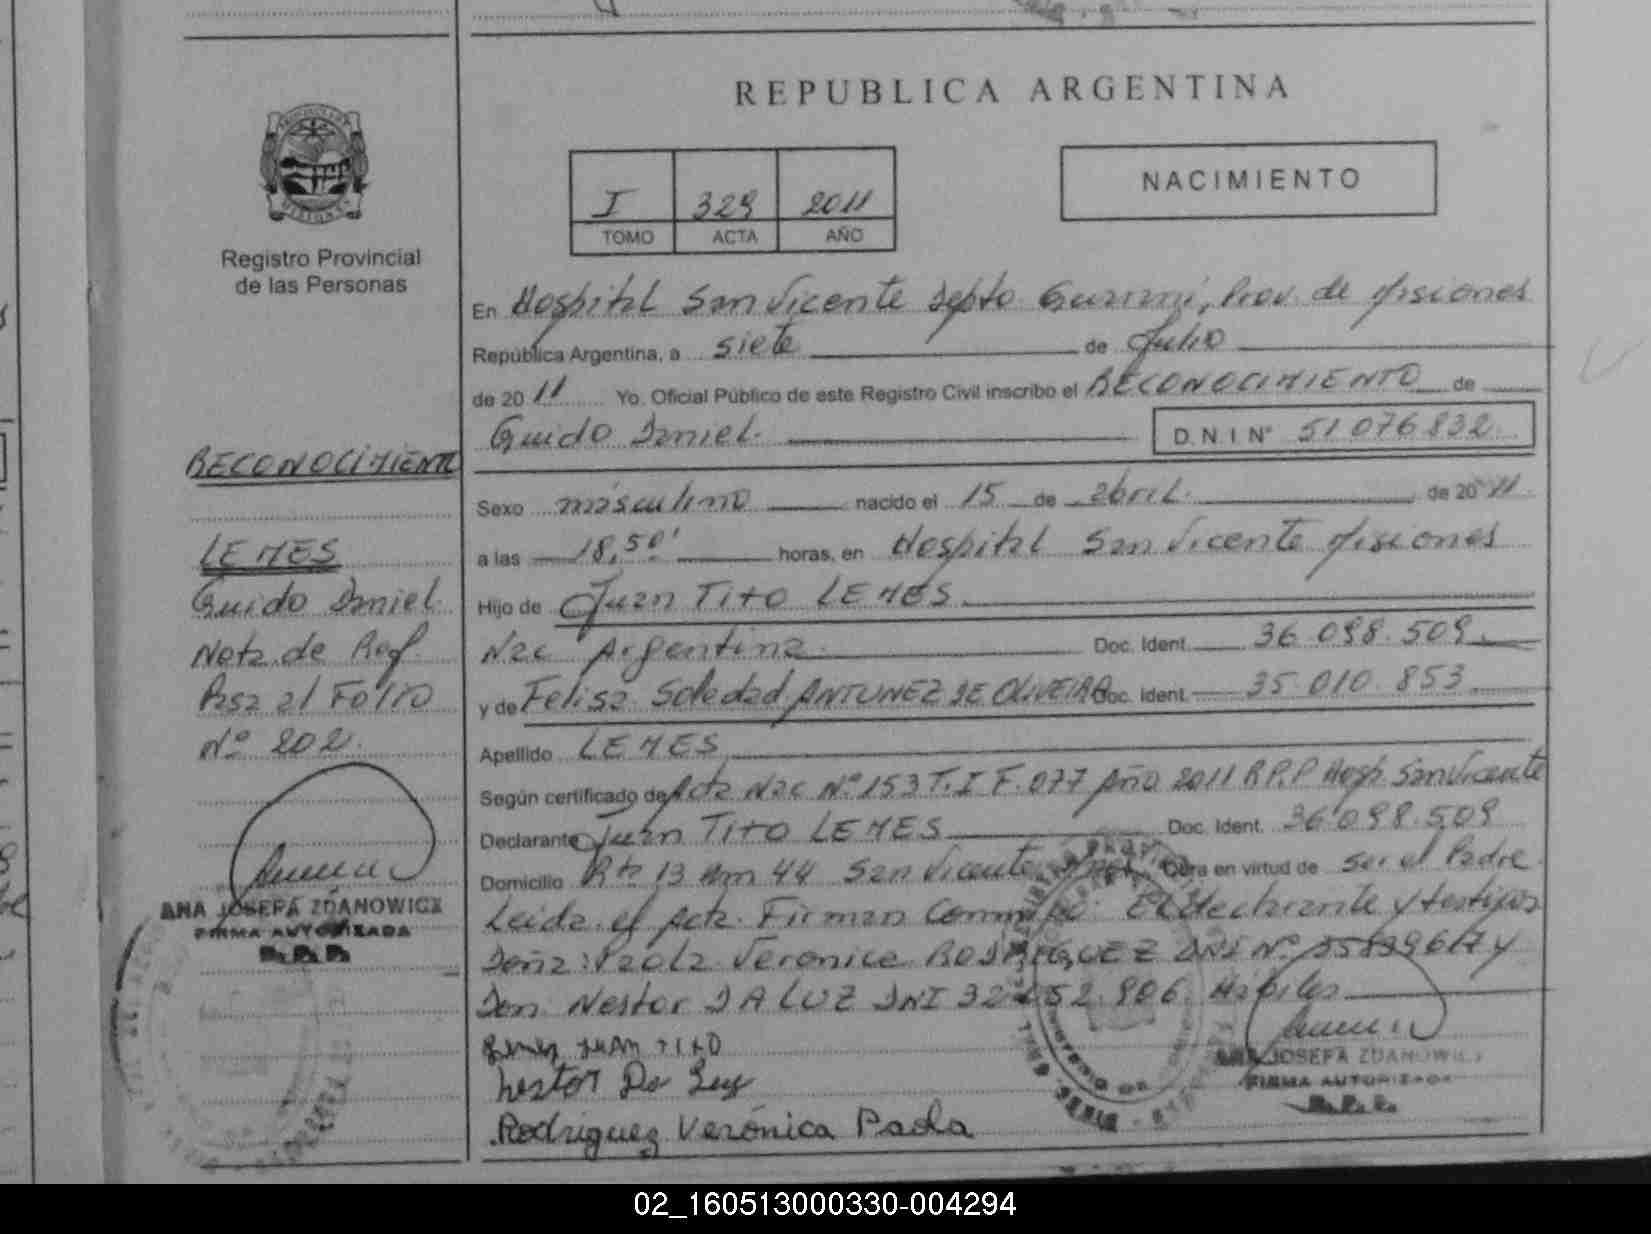 REPUBLICA ARGENTINA
I 329 2011
TOMO ACTA AÑO
NACIMIENTO
Registro Provincial
de las Personas
RECONOCIMIENTO
LEMES
Guido Daniel
Nota de Ref.
Pasa al Folio
Nº 202
ANA JOSEFA ZDANOWICZ
FIRMA AUTORIZADA
R.P.P.
En Hospital San Vicente Depto Guaraní, Prov. de Misiones
República Argentina, a siete de Julio
de 2011 Yo. Oficial Público de este Registro Civil inscribo el RECONOCIMIENTO de
Guido Daniel. D.N.I Nº 51 076 832
Sexo masculino nacido el 15 de abril. de 2011
a las 18,50' horas, en Hospital San Vicente Misiones
Hijo de Juan Tito LEMES
Nac Argentina Doc. Ident. 36.098.509
y de Felisa Soledad ANTUNEZ DE OLIVEIRA Doc. Ident. 35.010.853
Apellido LEMES
Según certificado de Acta Nac Nº 153 T.I F.077 Año 2011 R.P.P Hosp. San Vicente
Declarante Juan Tito LEMES Doc. Ident. 36.098.509
Domicilio Rta 13 Km 44 San Vicente Obra en virtud de ser el Padre
Leida el Acta. Firman Conmigo: El declarante y testigos
Doña: Paola Veronica RODRIGUEZ DNI Nº
Don Nestor DA LUZ DNI Hábiles
Lemes JUAN TITO
Nestor Da Luz
Rodriguez Verónica Paola
ANA JOSEFA ZDANOWICZ
FIRMA AUTORIZADA
R.P.P.
02_160513000330-004294